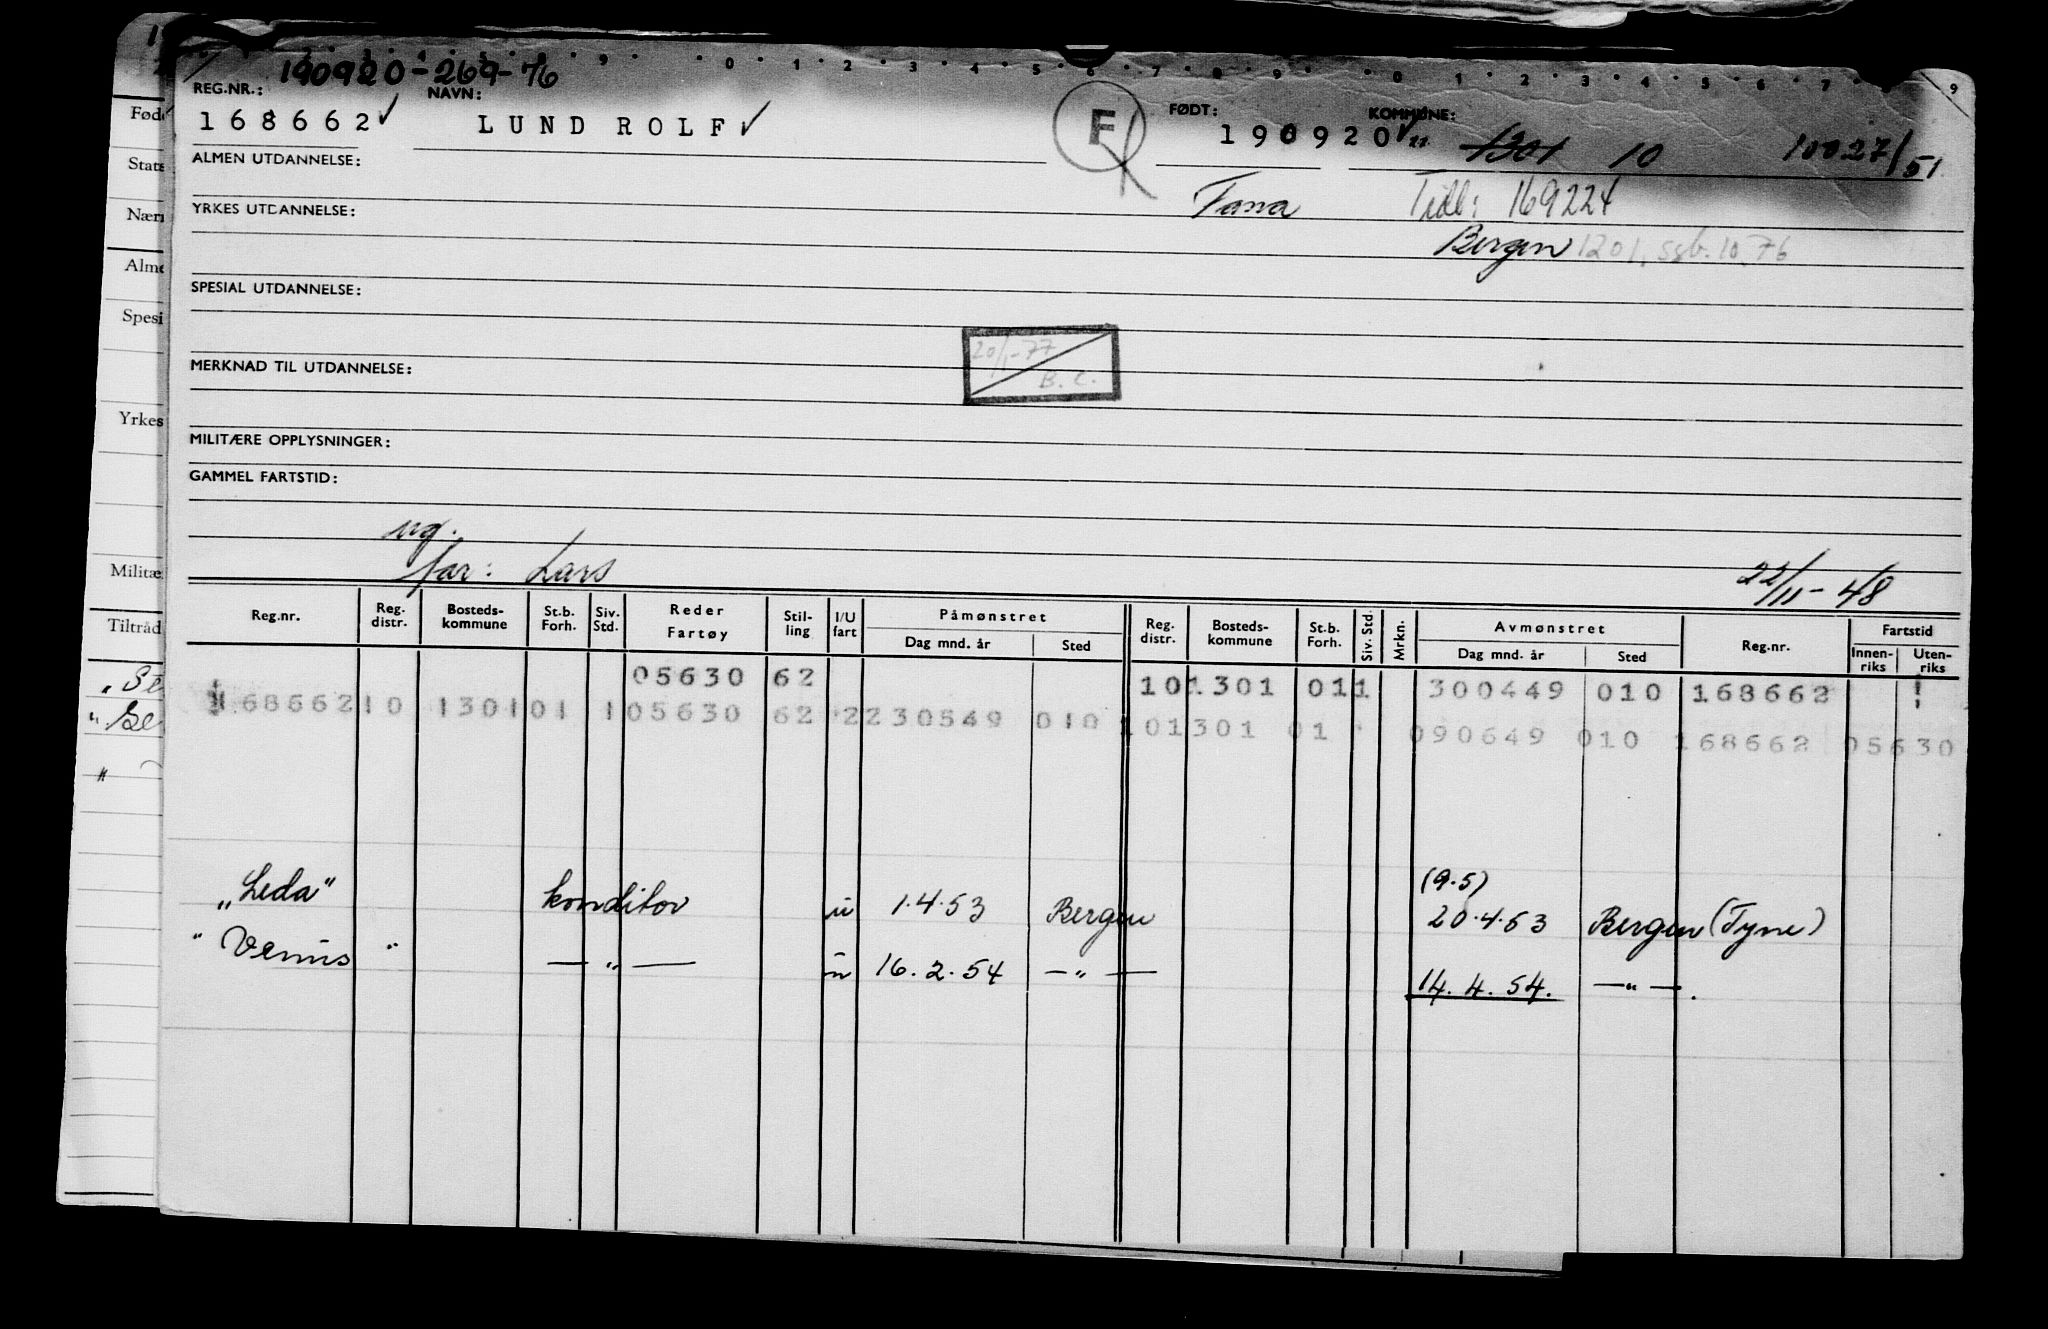 190920-26976
REG.NR.: NAVN: FØDT: KOMMUNE:
168662 LUND ROLF F 190920 1301 10 10027/51
ALMEN UTDANNELSE:
Fana Tidl: 169224
YRKES UTDANNELSE:
Bergen 1201, ssb. 10.76
SPESIAL UTDANNELSE:
20/1-77
B. C.
MERKNAD TIL UTDANNELSE:
MILITÆRE OPPLYSNINGER:
GAMMEL FARTSTID:
ug.
far: Lars 22/11-48
Reg.nr. Reg. distr. Bosteds- kommune St.b. Forh. Siv. Std. Reder Fartøy Stil- ling I/U fart Påmønstret Reg. distr. Bosteds- kommune St.b. Forh. Siv. Std. Mrkn. Avmønstret Reg.nr. Fartstid
Dag mnd. år Sted Dag mnd. år Sted Innen- riks Uten- riks
05630 62 101301 011 300449 010 168662
168662 10 1301 01 1 05630 62 2 230549 010 101301 01 090649 010 168662 05630
(9.5)
"Leda" konditor u 1.4.53 Bergen 20.4.53 Bergen (Tyne)
" Venus " — " — u 16.2.54 — " — 14.4.54. — " —.
Fød
Stats
Næri
Alme
Spesi
Yrkes
Militæ
Tiltråd